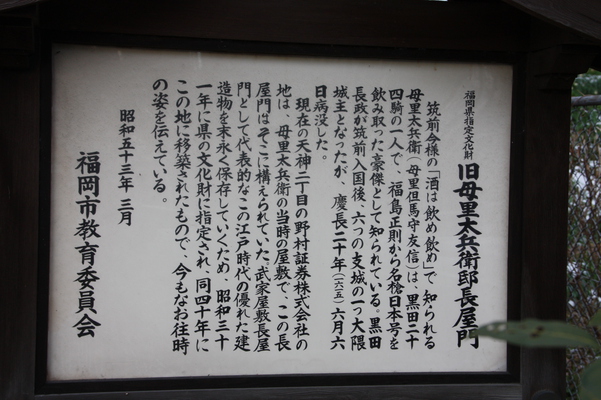 福岡県指定文化財 旧母里太兵衛邸長屋門
筑前今様の「酒は飲め飲め」で知られる
母里太兵衛(母里但馬守友信)は、黒田二十
四騎の一人で、福島正則から名槍日本号を
飲み取った豪傑として知られている。黒田
長政が筑前入国後、六つの支城の一つ大隈
城主となったが、慶長二十年(一六一五)六月六
日病没した。
現在の天神二丁目の野村証券株式会社の
地は、母里太兵衛の当時の屋敷で、この長
屋門はそこに構えられていた。武家屋敷長屋
門として代表的なこの江戸時代の優れた建
造物を末永く保存していくため、昭和三十
一年に県の文化財に指定され、同四十年に
この地に移築されたもので、今もなお往時
の姿を伝えている。
昭和五十三年三月
福岡市教育委員会